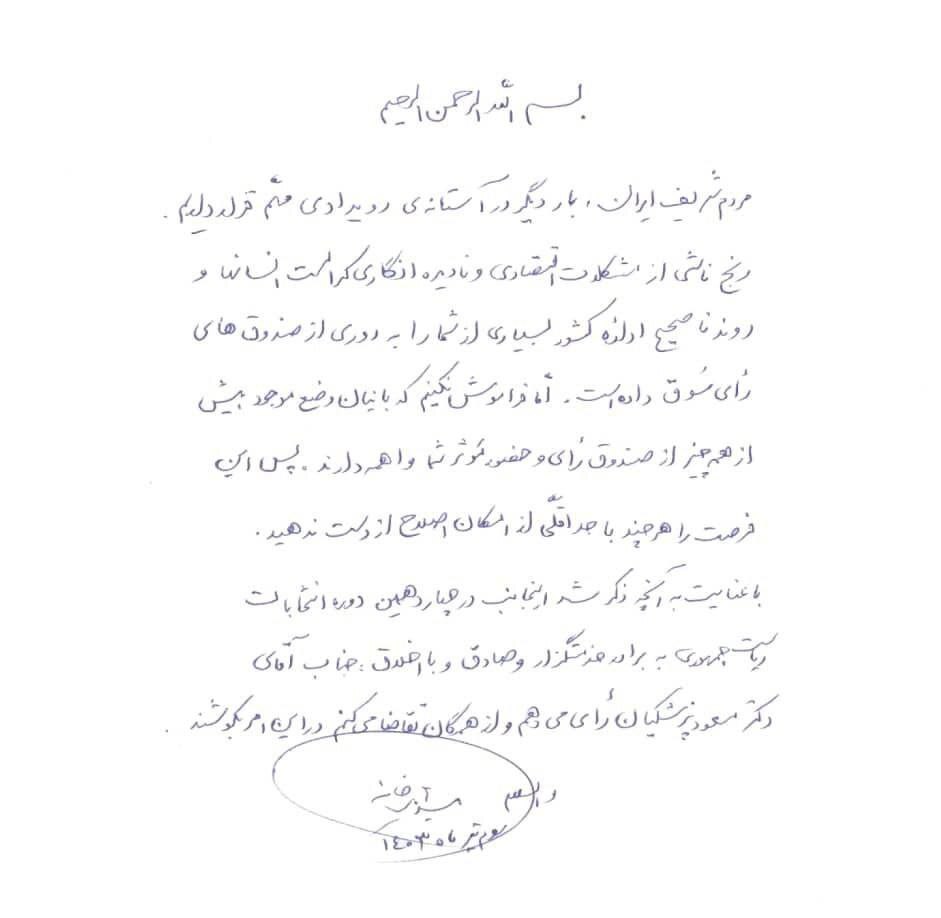 بسم الله الرحمن الرحیم
مردم شریف ایران، بار دیگر در آستانه‌ی رویدادی مهّم قرار داریم.
رنج ناشی از مشکلات اقتصادی و نادیده انگاری کرامت انسانها و
روند ناصحیح اداره کشور بسیاری از شما را به دوری از صندوق های
رأی سُوق داده است. امّا فراموش نکنیم که بانیان وضع موجود بیش
از هر چیز از صندوق رأی و حضور مؤثر شما واهمه دارند. پس این
فرصت را هر چند با حداقلّی از امکان اصلاح از دست ندهید.
با عنایت به آنچه ذکر شد اینجانب در چهاردهمین دوره انتخابات
ریاست جمهوری به برادر خدمتگزار و صادق و با اخلاق: جناب آقای
دکتر مسعود پزشکیان رأی می دهم و از همگان تقاضا می کنم در این امر بکوشند.
والسلام
تیر ماه ۱۴۰۳